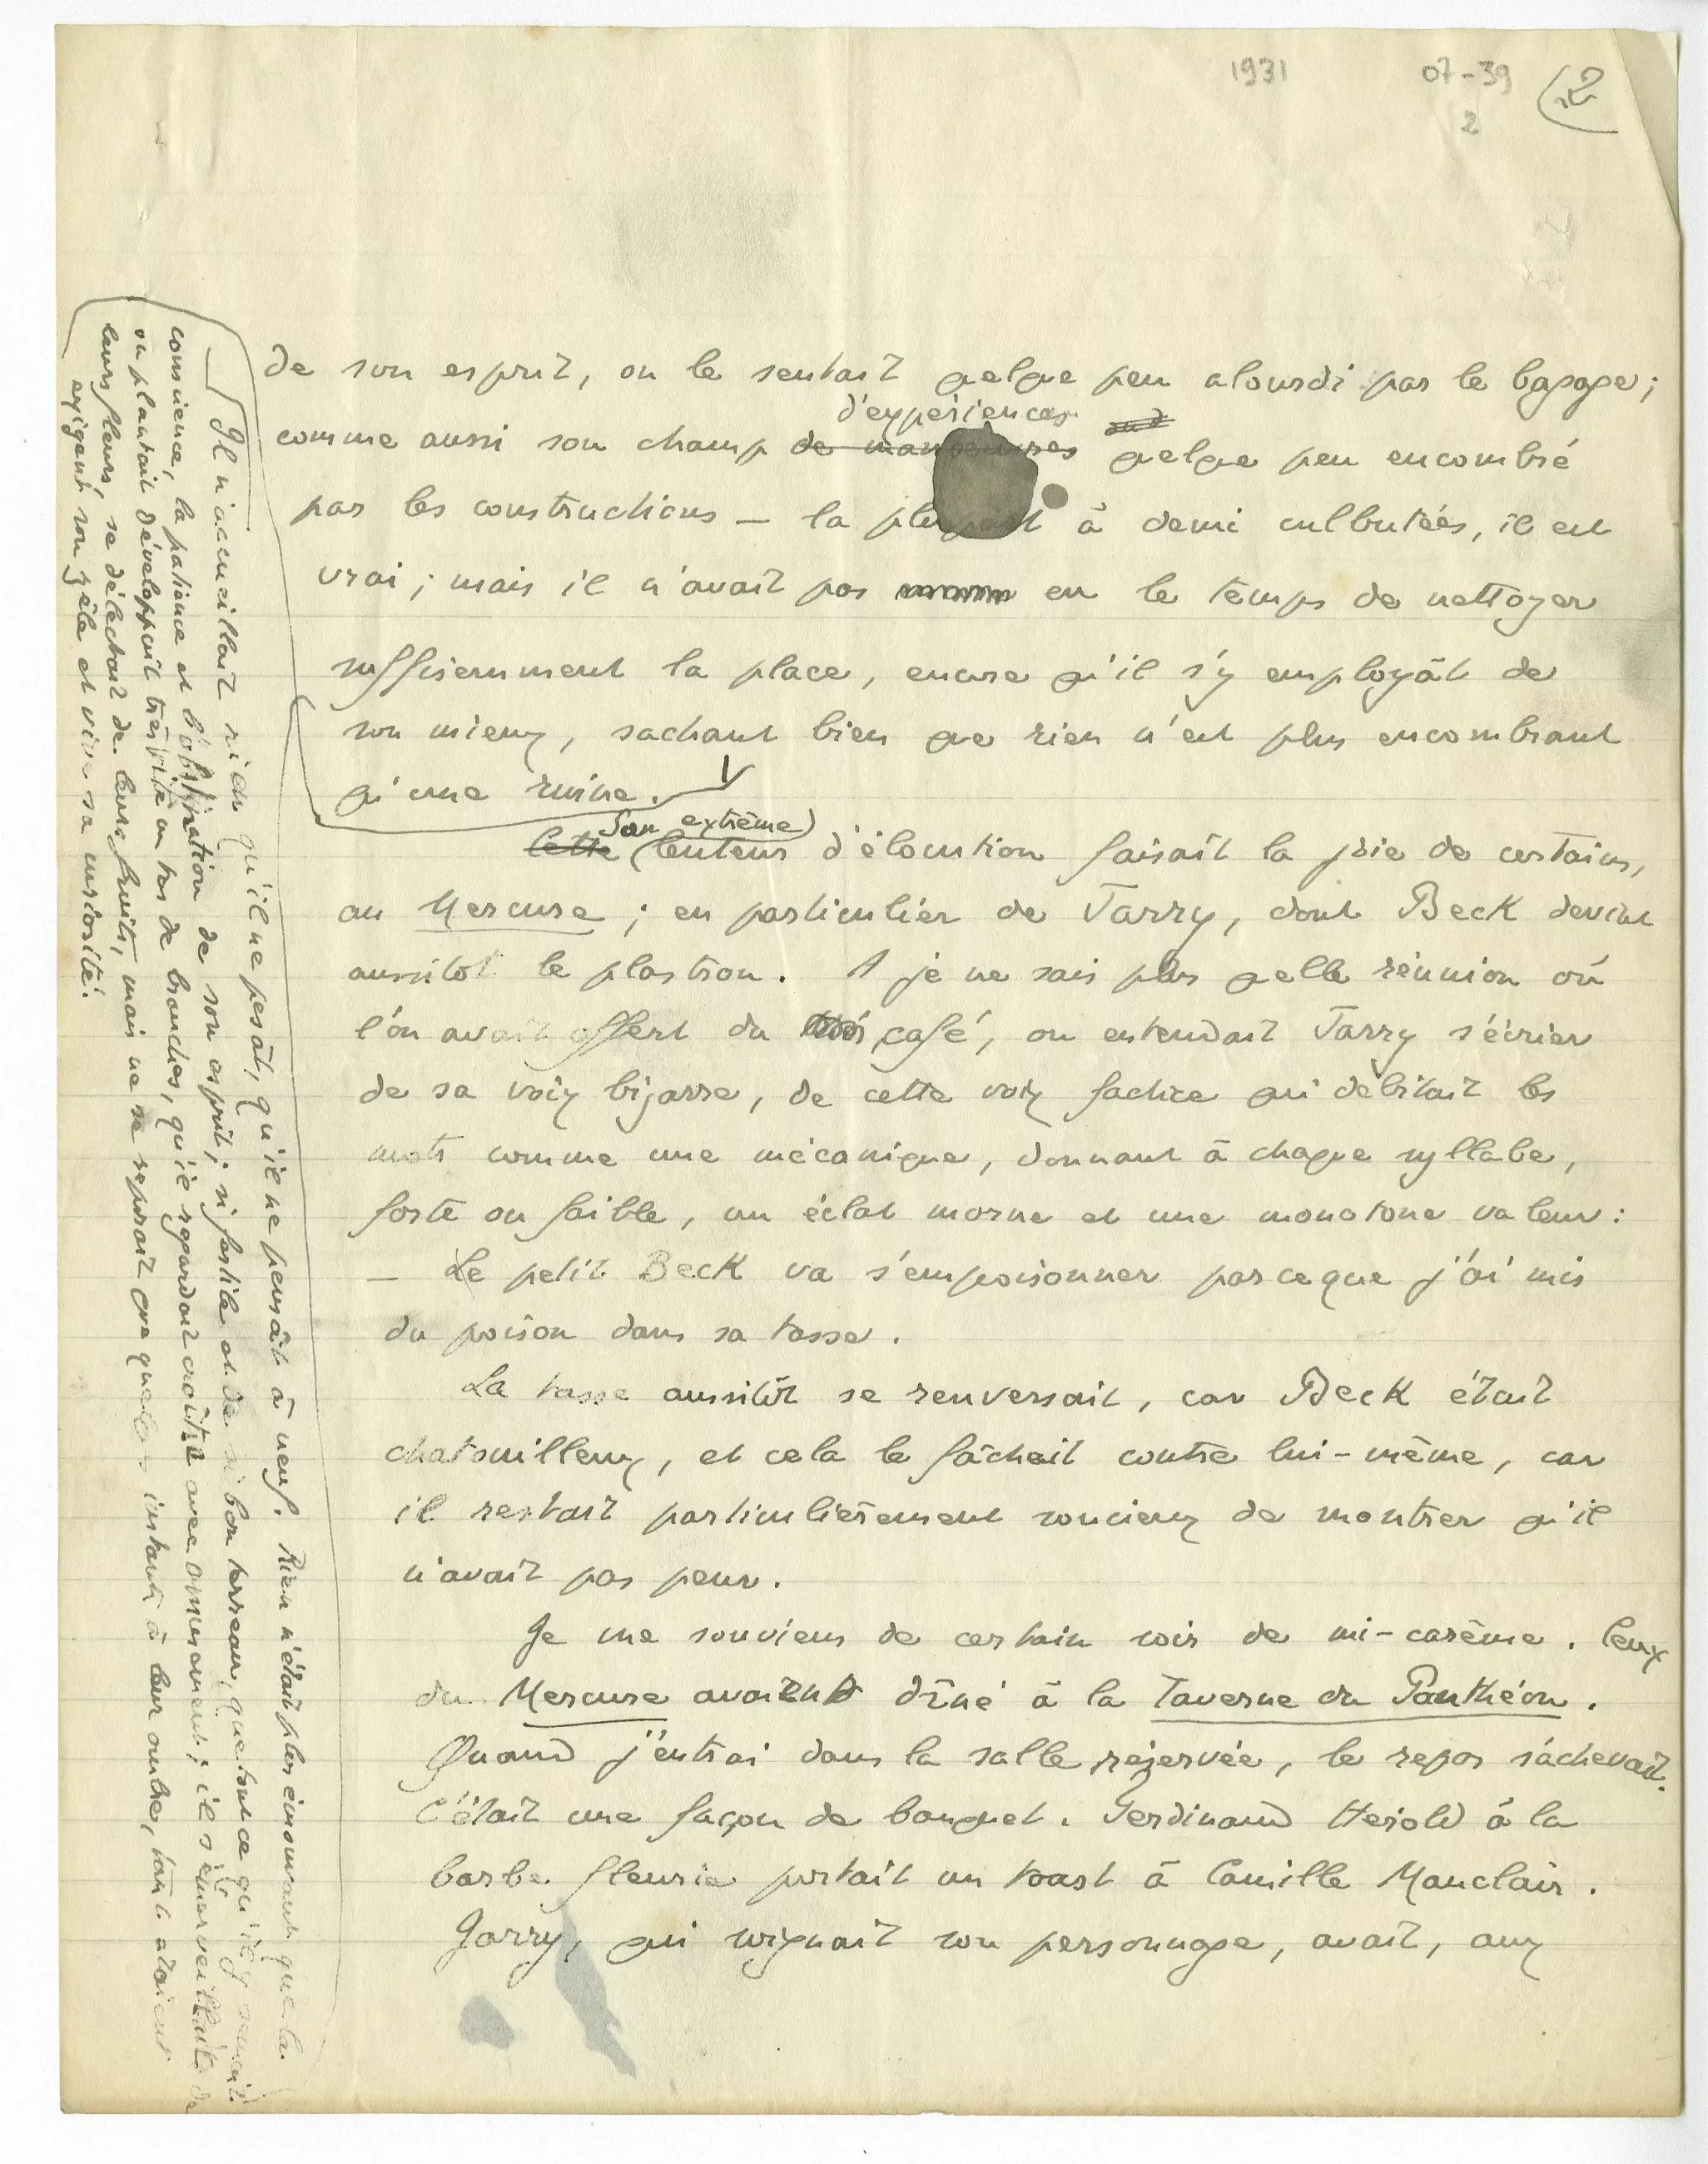 1931 07-39 2
2
de son esprit, on le sentait qelqe peu alourdi par le bagage;
d'expériences
comme aussi son champ de manoeuvres qelqe peu encombré
par les constructions — la plupart à demi culbutées, il est
vrai; mais il n'avait pas eu le temps de nettoyer
suffisemment la place, encore qu'il s'y employât de
son mieux, sachant bien qe rien n'est plus encombrant
qu'une ruine.
Son extrême
Cette (lenteur d'élocution faisait la joie de certains,
au Mercure; en particulier de Jarry, dont Beck devint
aussitot le plastron. A je ne sais plus qelle réunion où
l'on avait offert du café, on entendait Jarry s'écrier
de sa voix bizarre, de cette voix factice qui débitait les
mots comme une mécanique, donnant à chaque syllabe,
forte ou faible, un éclat morne et une monotone valeur:
— Le petit Beck va s'empoisonner parceque j'ai mis
du poison dans sa tasse.
La tasse aussitôt se renversait, car Beck était
chatouilleux, et cela le fâchait contre lui-même, car
il restait particulièrement soucieux de montrer qu'il
n'avait pas peur.
Je me souviens de certain soir de mi-carême. Ceux
du Mercure avaient dîné à la Taverne du Panthéon.
Quand j'entrai dans la salle réservée, le repas s'achevait.
C'était une façon de banquet. Ferdinand Herold à la
barbe fleurie portait un toast à Camille Mauclair.
Jarry, qui soignait son personnage, avait, aux
Il n'accueillait rien qu'il ne pesât, qu'il ne pensât à neuf. Rien n'était plus émouvant que la
conscience, la patience et l'obstination de son esprit; si fertile et de si bon terreau, que tout ce qu'il y semait
ou plantait développait très vite un tas de branches, qu'il regardait croître avec amusement; il s'émerveillait de
leurs fleurs, se délectait de leurs fruits, mais ne se reposait que quelques instants à leur ombre, tant étaient
exigeant son zèle et vive sa curiosité.